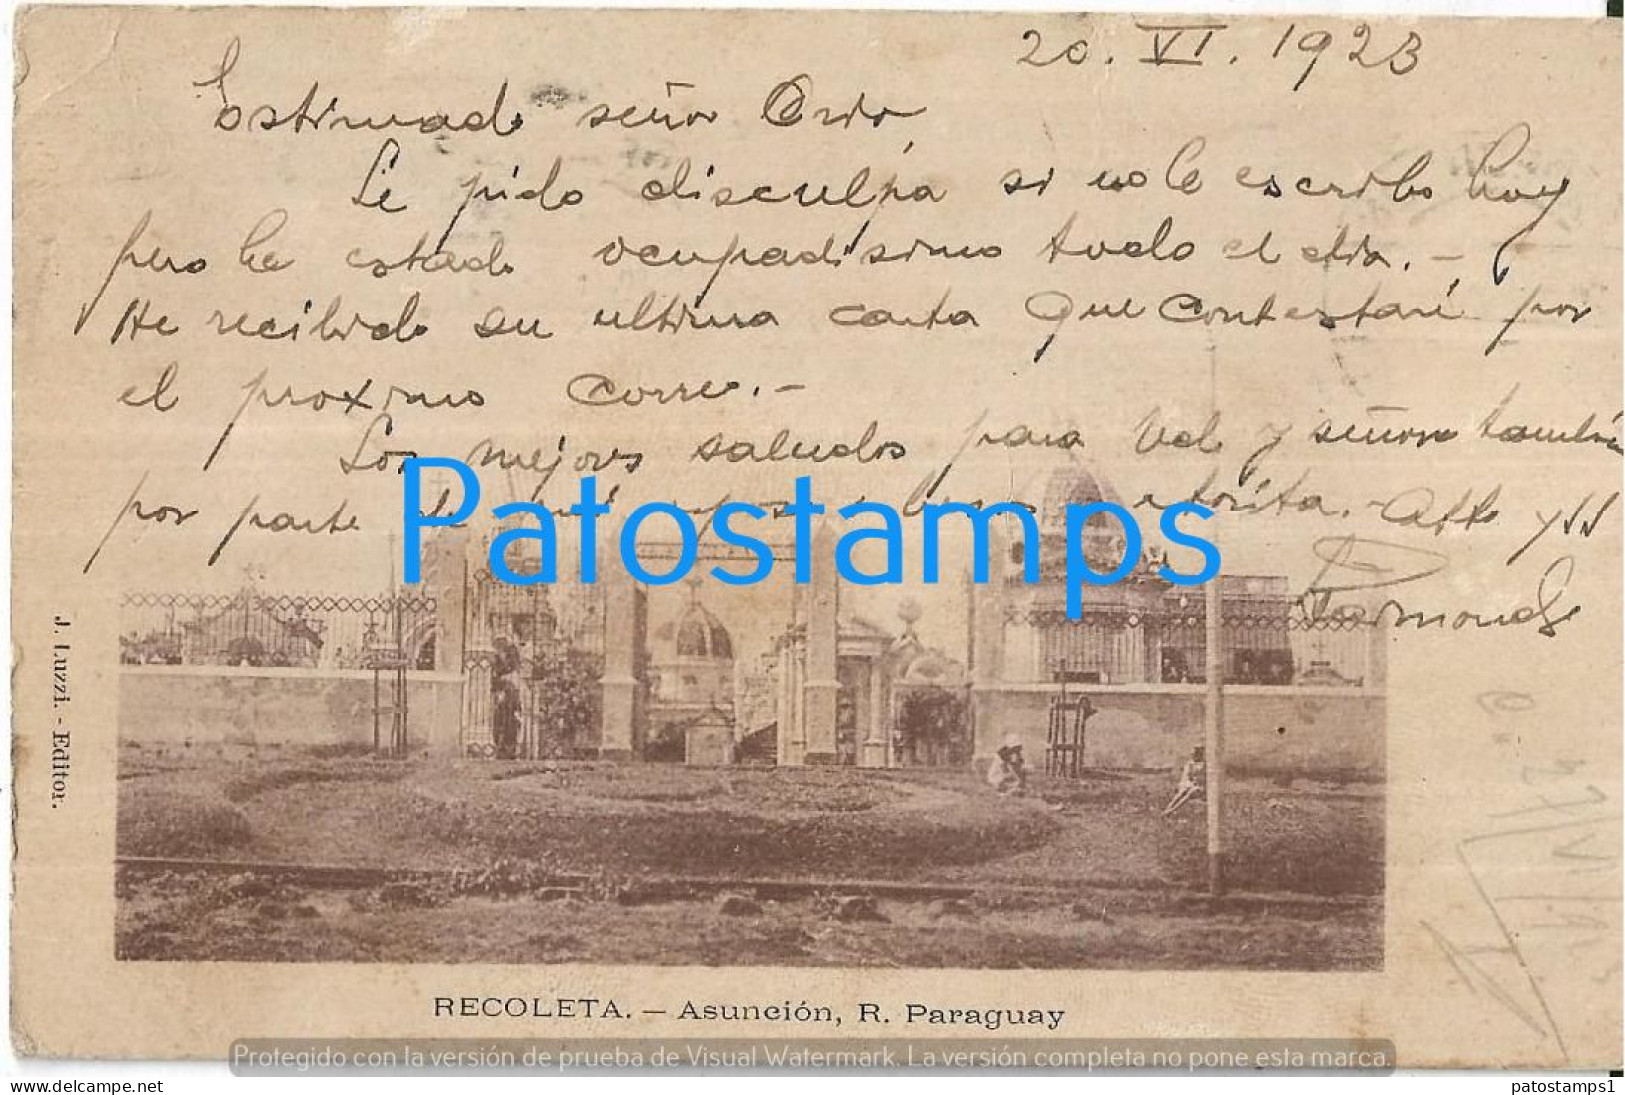 20. VI. 1923
Estimado señor
Le pido disculpa si no le escribo hoy
pero he estado ocupadisimo todo el dia. -
He recibido su ultima carta que contestaré por
el proximo correo. -
Los mejores saludos para Vd y señora tambien
por parte de mi
Patostamps
J. Luzzi. - Editor.
RECOLETA. — Asunción, R. Paraguay
Protegido con la versión de prueba de Visual Watermark. La versión completa no pone esta marca.
delcampe.net
patostamps1